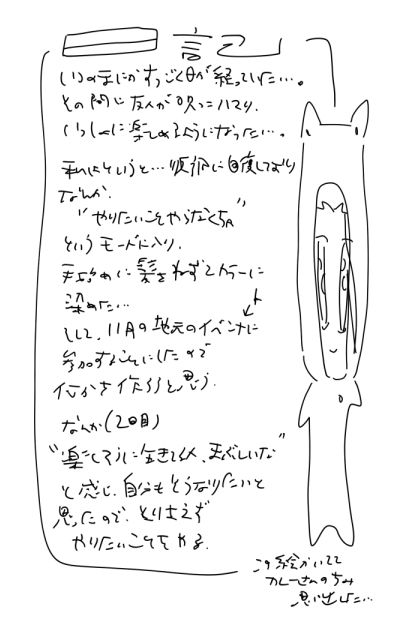 日記
いつのまにかすっごく日が経っていた…。
その間に友人が ハマり、
いっしょに楽しめるようになった…。
私はというと…順調に回復しており
なんか、
"やりたいことやらなくちゃ"
というモードに入り、
手始めに髪をねずこカラーに
染めた…
そして、11月の地元のイベントに
参加することにしたので
何かを作ろうと思う。
なんか(2回目)
"楽しそうに生きてる人、まぶしいな"
と感じ、自分もそうなりたいと
思ったので、とりあえず
やりたいことをやる。
この絵かいてて
カレーさんの
思い出した…